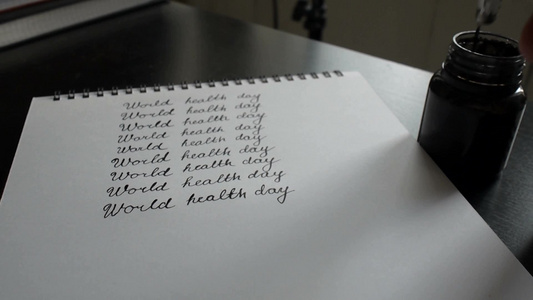 World health day
World health day
World health day
World health day
World health day
World health day
World health day
World health day
World health day